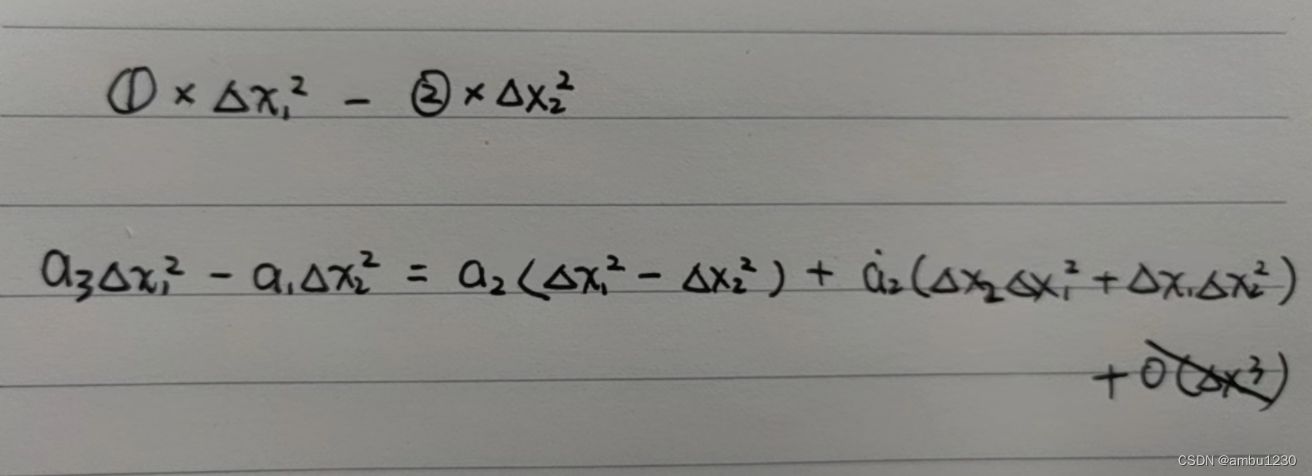 ① × Δx₁² - ② × Δx₂²
a₃Δx₁² - a₁Δx₂² = a₂(Δx₁² - Δx₂²) + ȧ₂(Δx₂Δx₁² + Δx₁Δx₂²)
+ O(Δx³)
CSDN @ambu1230